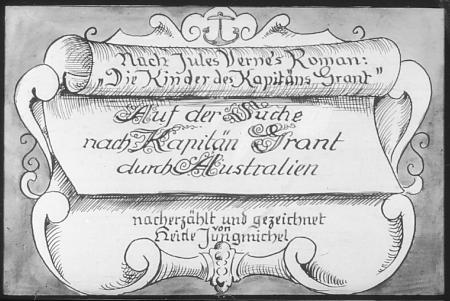 Nach Jules Verne's Roman:
"Die Kinder des Kapitäns Grant"
Auf der Suche
nach Kapitän Grant
durch Australien
nacherzählt und gezeichnet
von
Jungmichel